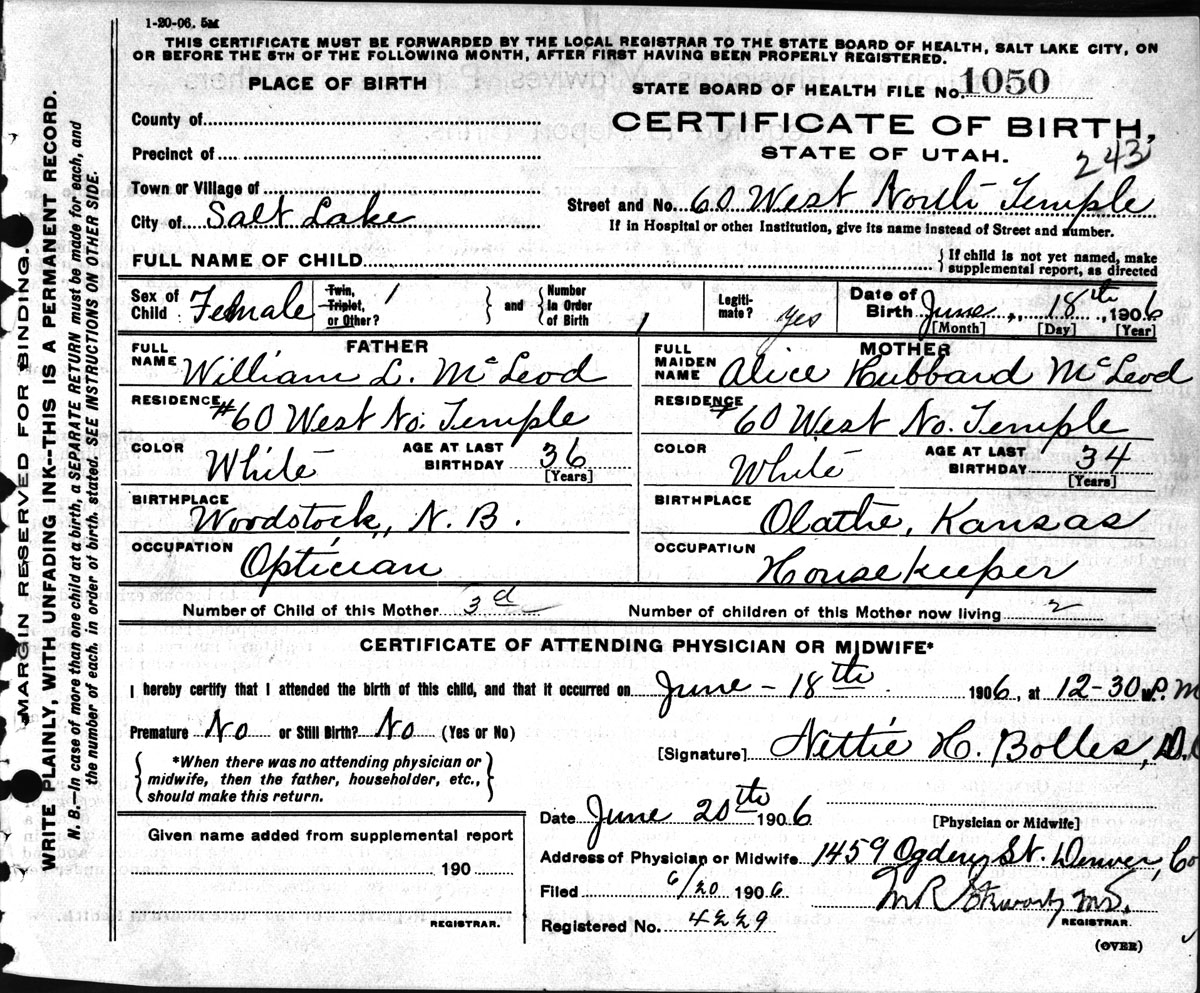 1-20-06. 5M
THIS CERTIFICATE MUST BE FORWARDED BY THE LOCAL REGISTRAR TO THE STATE BOARD OF HEALTH, SALT LAKE CITY, ON
OR BEFORE THE 5TH OF THE FOLLOWING MONTH, AFTER FIRST HAVING BEEN PROPERLY REGISTERED.
PLACE OF BIRTH
STATE BOARD OF HEALTH FILE No. 1050
County of
CERTIFICATE OF BIRTH,
Precinct of
STATE OF UTAH.
243
Town or Village of
Street and No. 60 West North Temple
City of Salt Lake
If in Hospital or other Institution, give its name instead of Street and number.
FULL NAME OF CHILD
If child is not yet named, make
supplemental report, as directed
Sex of Child Female
Twin, Triplet, or Other? 1
and
Number in Order of Birth 1
Legiti-mate? yes
Date of Birth June 18th, 1906
[Month] [Day] [Year]
FATHER
FULL NAME William L. McLeod
MOTHER
FULL MAIDEN NAME Alice Hubbard McLeod
RESIDENCE #60 West No. Temple
RESIDENCE #60 West No. Temple
COLOR White
AGE AT LAST BIRTHDAY 36
[Years]
COLOR White
AGE AT LAST BIRTHDAY 34
[Years]
BIRTHPLACE Woodstock, N.B.
BIRTHPLACE Olathe, Kansas
OCCUPATION Optician
OCCUPATION Housekeeper
Number of Child of this Mother 3d
Number of children of this Mother now living 2
CERTIFICATE OF ATTENDING PHYSICIAN OR MIDWIFE*
I hereby certify that I attended the birth of this child, and that it occurred on June - 18th 1906, at 12-30 P.M
Premature No or Still Birth? No (Yes or No)
[Signature] Nettie H. Bolles, D.
*When there was no attending physician or
midwife, then the father, householder, etc.,
should make this return.
Date June 20th 1906
[Physician or Midwife]
Given name added from supplemental report
190
REGISTRAR.
Address of Physician or Midwife 1459 Ogden St. Denver, Co
Filed 6/20 1906
REGISTRAR.
Registered No. 4229
(OVER)
MARGIN RESERVED FOR BINDING.
WRITE PLAINLY, WITH UNFADING INK--THIS IS A PERMANENT RECORD.
N. B.—In case of more than one child at a birth, a SEPARATE RETURN must be made for each, and
the number of each, in order of birth, stated. SEE INSTRUCTIONS ON OTHER SIDE.